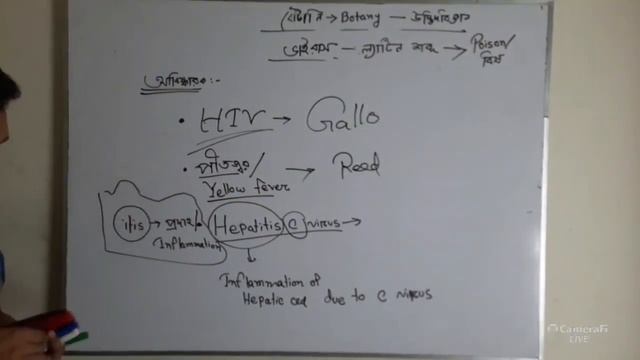 বোটানি → Botany — উদ্ভিদবিজ্ঞান
ভাইরাস — ল্যাটিন শব্দ → Poison/
বিষ
আবিষ্কারক:-
• HIV → Gallo
• পীতজ্বর/ → Reed
Yellow fever
itis → প্রদাহ/ Hepatitis C virus →
Inflammation
Inflammation of
Hepatic cell due to C virus
CameraFi
LIVE